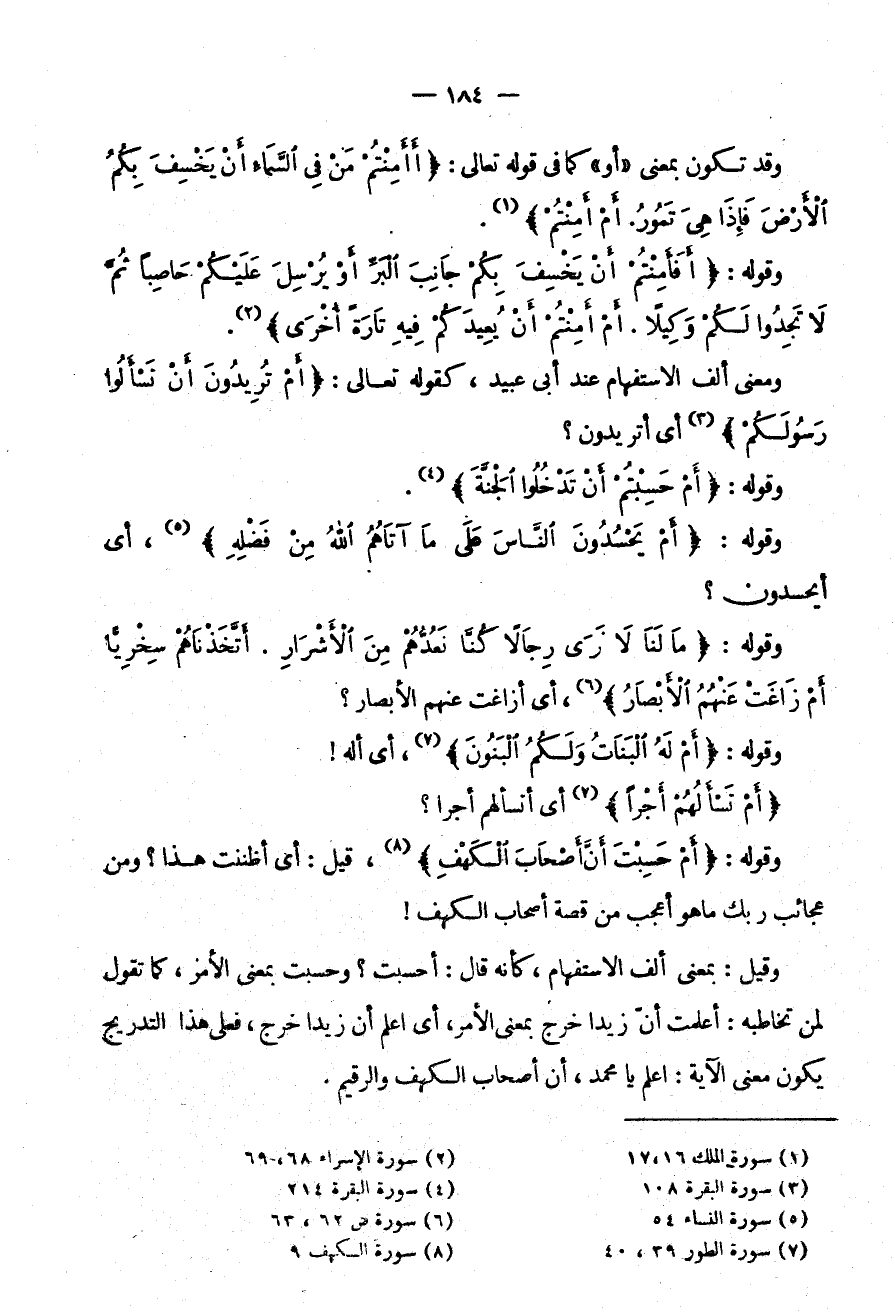 — ١٨٤ —
وقد تكون بمعنى «أو» كما فى قوله تعالى : ﴿ أَأَمِنْتُمْ مَنْ فِي ٱلسَّمَاءِ أَنْ يَخْسِفَ بِكُمُ
ٱلْأَرْضَ فَإِذَا هِيَ تَمُورُ. أَمْ أَمِنْتُمْ ﴾ (١) .
وقوله : ﴿ أَفَأَمِنْتُمْ أَنْ يَخْسِفَ بِكُمْ جَانِبَ ٱلْبَرِّ أَوْ يُرْسِلَ عَلَيْكُمْ حَاصِباً ثُمَّ
لَا تَجِدُوا لَكُمْ وَكِيلًا . أَمْ أَمِنْتُمْ أَنْ يُعِيدَكُمْ فِيهِ تَارَةً أُخْرَى ﴾ (٢) .
ومعنى ألف الاستفهام عند أبى عبيد ، كقوله تعالى : ﴿ أَمْ تُرِيدُونَ أَنْ تَسْأَلُوا
رَسُولَكُمْ ﴾ (٣) أى أتريدون ؟
وقوله : ﴿ أَمْ حَسِبْتُمْ أَنْ تَدْخُلُوا ٱلْجَنَّةَ ﴾ (٤) .
وقوله : ﴿ أَمْ يَحْسُدُونَ ٱلنَّاسَ عَلَى مَا آتَاهُمُ ٱللهُ مِنْ فَضْلِهِ ﴾ (٥) ، أى
أيحسدون ؟
وقوله : ﴿ مَا لَنَا لَا نَرَى رِجَالًا كُنَّا نَعُدُّهُمْ مِنَ ٱلْأَشْرَارِ . أَتَّخَذْنَاهُمْ سِخْرِيًّا
أَمْ زَاغَتْ عَنْهُمُ ٱلْأَبْصَارُ ﴾ (٦) ، أى أزاغت عنهم الأبصار ؟
وقوله : ﴿ أَمْ لَهُ ٱلْبَنَاتُ وَلَكُمُ ٱلْبَنُونَ ﴾ (٧) ، أى أله !
﴿ أَمْ تَسْأَلُهُمْ أَجْراً ﴾ (٧) أى أتسألهم أجرا ؟
وقوله : ﴿ أَمْ حَسِبْتَ أَنَّ أَصْحَابَ ٱلْكَهْفِ ﴾ (٨) ، قيل : أى أظننت هذا ؟ ومن
عجائب ربك ماهو أعجب من قصة أصحاب الكهف !
وقيل : بمعنى ألف الاستفهام ، كأنه قال : أحسبت ؟ وحسبت بمعنى الأمر ، كما تقول
لمن تخاطبه : أعلمت أنّ زيدا خرج بمعنى الأمر، أى اعلم أن زيدا خرج ، فعلى هذا التدريج
يكون معنى الآية : اعلم يا محمد ، أن أصحاب الكهف والرقيم .
(١) سورة الملك ١٦،١٧ (٢) سورة الإسراء ٦٨،٦٩
(٣) سورة البقرة ١٠٨ (٤) سورة البقرة ٢١٤
(٥) سورة النساء ٥٤ (٦) سورة ص ٦٢ ، ٦٣
(٧) سورة الطور ٣٩ ، ٤٠ (٨) سورة الكهف ٩